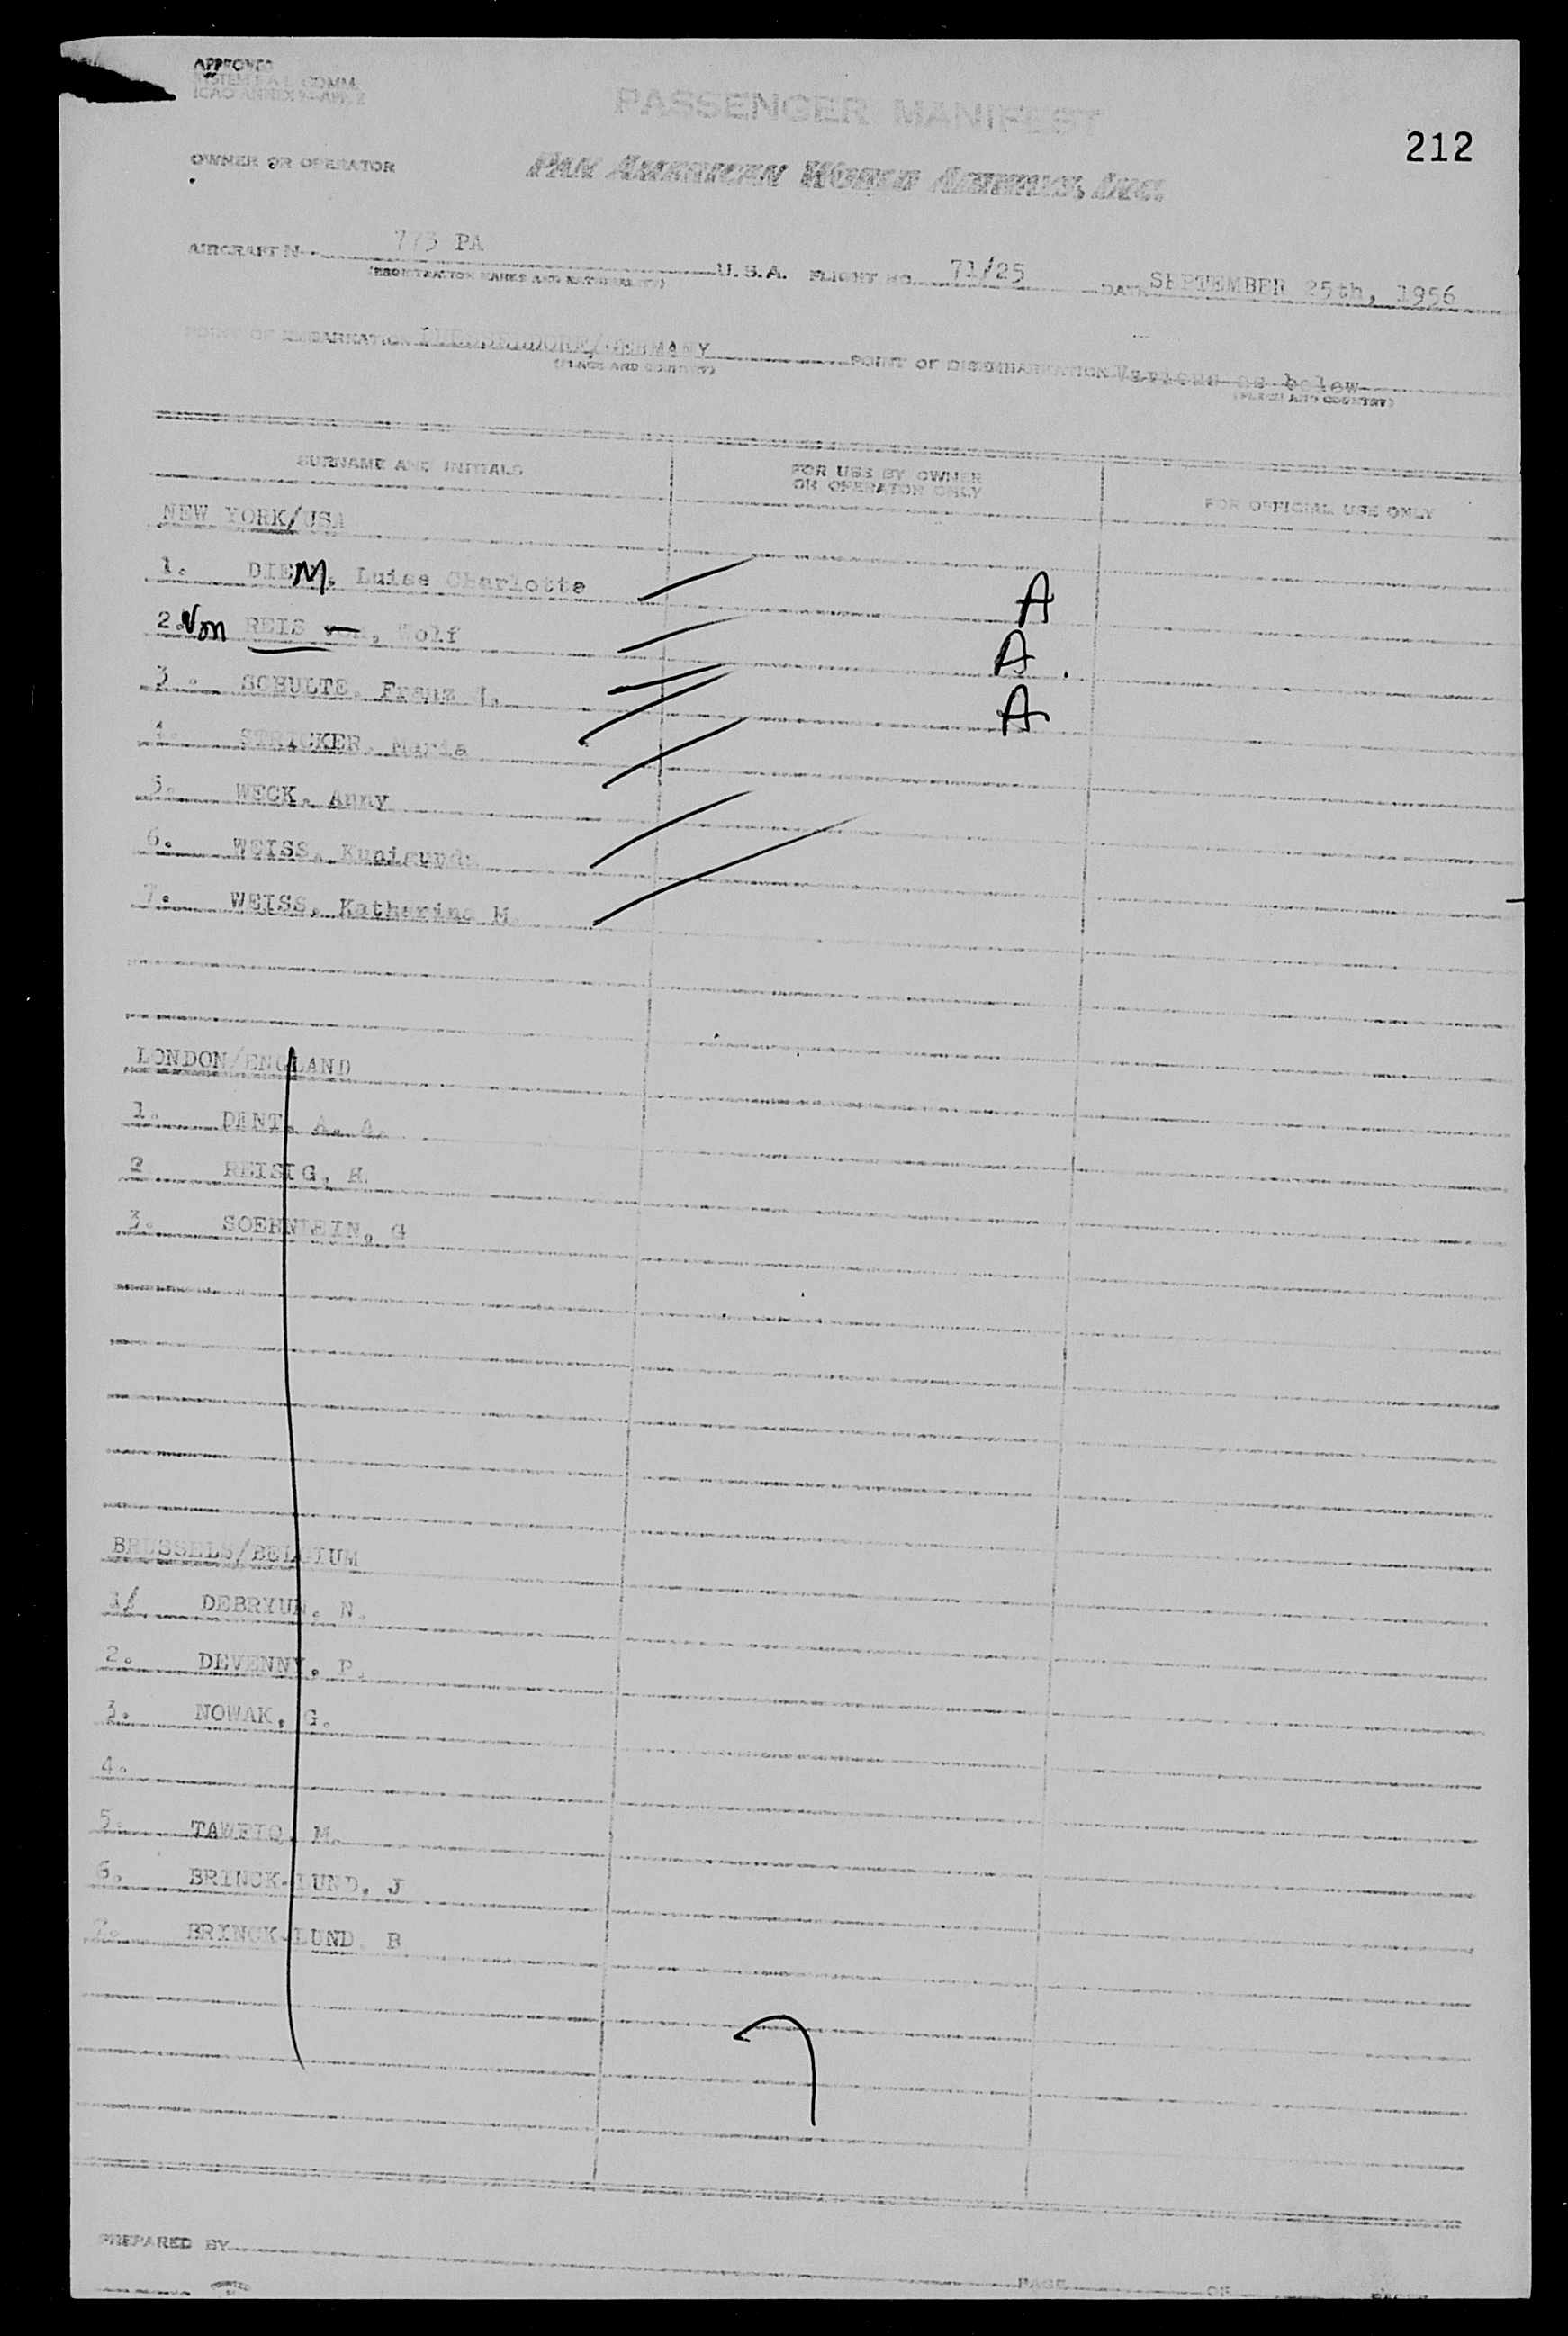 APPROVED
SYSTEM F.A.L. COMM.
ICAO ANNEX 9-APP. 2
PASSENGER MANIFEST
212
OWNER OR OPERATOR
PAN AMERICAN WORLD AIRWAYS, INC.
AIRCRAFT N 773 PA U.S.A. FLIGHT NO. 71/25 DATE SEPTEMBER 25th, 1956
(REGISTRATION MARKS AND NATIONALITY)
POINT OF EMBARKATION GERMANY POINT OF DISEMBARKATION Various as below
(PLACE AND COUNTRY) (PLACE AND COUNTRY)
SURNAME AND INITIALS FOR USE BY OWNER OR OPERATOR ONLY FOR OFFICIAL USE ONLY
NEW YORK/USA
1. DIEM, Luise Charlotte A
2. Von REIS von, Wolf A
3. SCHULTE, Franz A
4. STRICKER, Maria
5. WECK, Anny
6. WEISS, Kunigunda
7. WEISS, Katharina M.
LONDON/ENGLAND
1. DENT, A. A.
2 REISIG, H.
3. SOEHNLEIN, G
BRUSSELS/BELGIUM
1/ DEBRYUN, N.
2. DEVENNY, P.
3. NOWAK, G.
4.
5. TAWFIQ, M.
6. BRINCK-LUND, J
7. BRINCK-LUND, B
PREPARED BY
PAGE OF PAGES
PRINTED